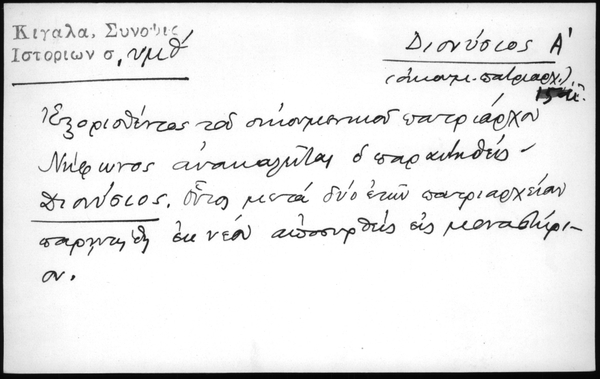 Κιγαλα, Συνοψις
Ιστοριων σ, υμθ´
Διονύσιος Α'
(οικουμ. πατριαρχ.)
Ἐξορισθέντος τοῦ οἰκουμενικοῦ πατριάρχου
Νήφωνος ἀνακαλεῖται ὁ παραιτηθείς
Διονύσιος. Οὗτος μετά δύο ἐτῶν πατριαρχείαν
παρῃτήθη ἐκ νέου ἀποσυρθείς εἰς μοναστήρι-
ον.